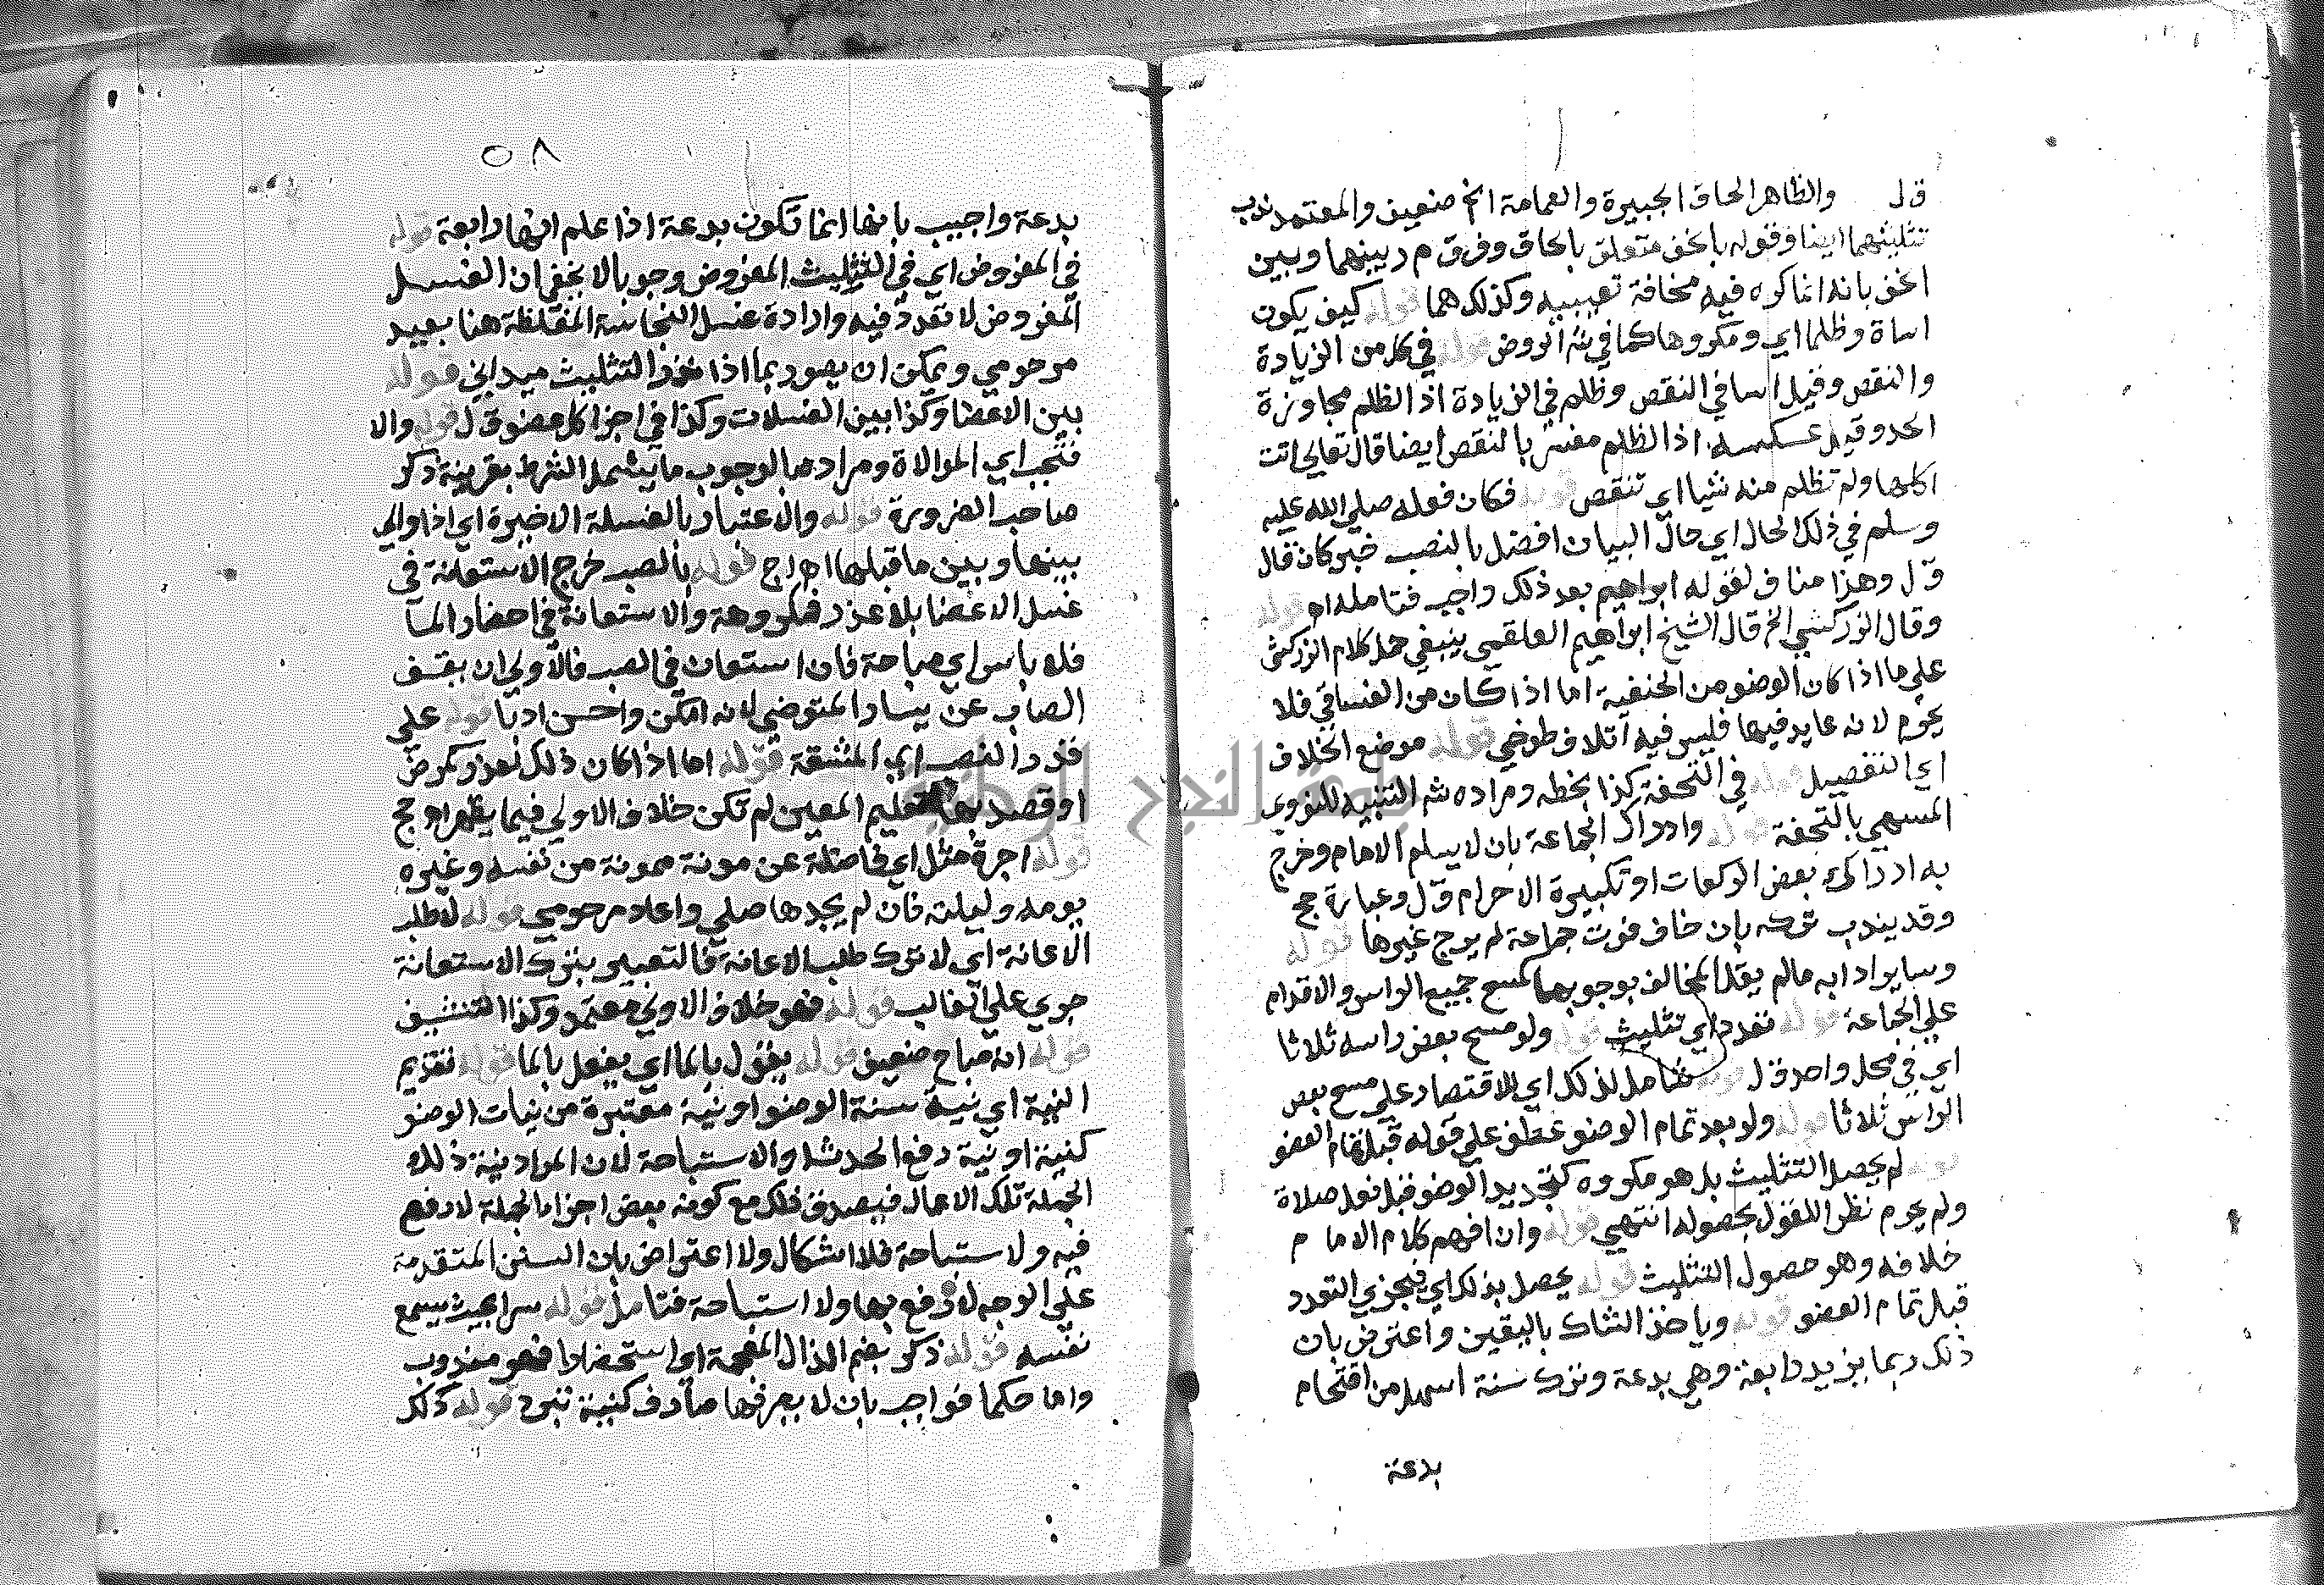 ق ل والظاهر الحاق الجبيرة والعمامة الخ ضعيف والمعتمد ندب
تثليثهما ايضا وقوله بالخف متعلق بالحاق وفرق م ر بينهما وبين
الخف بانه انما كره فيه مخافة تعييبه وكذلك هما قوله كيف يكون
اساة وظلما اي ومكروها كما في شر الروض قوله في كل من الزيادة
والنقص وقيل اسا في النقص وظلم في الزيادة اذ الظلم مجاوزة
الحد وقيل عكسه اذ الظلم مفسر بالنقص ايضا قال تعالى اتت
اكلها ولم تظلم منه شيا اي تنقص قوله فكان فعله صلي الله عليه
وسلم في ذلك الحال اي حال البيان افضل بالنصب خبر كان قال
ق ل وهذا مناف لقوله ابراهيم بعد ذلك واجب فتامله اه قوله
وقال الزركشي الخ قال الشيخ ابراهيم العلقمي ينبغي حمل كلام الزركشي
علي ما اذا كان الوضو من الحنفية اما اذا كان من الفساقي فلا
يحرم لانه عايد فيها فليس فيه اتلاف طوخي قوله موضع الخلاف
اي التفصيل قوله في التحفة كذا بخطه ومراده شر التنبيه للنووي
المسمي بالتحفة قوله وادراك الجماعة بان لا يسلم الامام وخرج
به ادراك بعض الركعات او تكبيرة الاحرام ق ل وعبارة حج
وقد يندب تركه بان خاف فوت جماعة لم يرج غيرها قوله
وساير ادابه مالم يقل المخالف بوجوبها كمسح جميع الراس والاقدام
علي الجماعة قوله تعدد اي تثليث قوله ولو مسح بعض راسه ثلاثا
اي في محل واحد ق ل قوله شامل لذلك اي للاقتصار علي مسح بعض
الراس ثلاثا قوله ولو بعد تمام الوضو عطف علي قوله قبل تمام العضو
قوله لم يحصل التثليث بل هو مكروه كتجديد الوضو قبل فعل صلاة
ولم يحرم نظرا للقول بحصوله انتهي قوله وان افهم كلام الامام
خلافه وهو حصول التثليث قوله يحصل بذلك اي فيجزي التعدد
قبل تمام العضو قوله وياخذ الشاك باليقين واعترض بان
ذلك ربما يزيد رابعة وهي بدعة وترك سنة اسهل من اقتحام
بدعة
٥٨
بدعة واجيب بانها انما تكون بدعة اذا علم انها رابعة قوله
في المفروض اي في التثليث المفروض وجوبا لا يخفي ان الغسل
المفروض لا تعدد فيه وارادة غسل النجاسة المغلظة هنا بعيد
مرحومي ويمكن ان يصور بما اذا نذر التثليث ميداني قوله
بين الاعضا وكذا بين الغسلات وكذا في اجزا كل عضو ق ل قوله والا
فتجب اي الموالاة ومراده بالوجوب ما يشمل الشرط بقرينة ذكر
صاحب الضرورة قوله والاعتبار بالغسلة الاخيرة اي اذا والي
بينها وبين ما قبلها اه اج قوله بالصب خرج الاستعانة في
غسل الاعضا بلا عذر فمكروهة والاستعانة في احضار الما
فلا باس اي مباحة فان استعان في الصب فالاولي ان يقف
الصاب عن يسار المتوضي لانه امكن واحسن ادبا قوله علي
قدر النصب اي المشقة قوله اما اذا كان ذلك لعذر كمرض
او قصد بها تعليم المعين لم تكن خلاف الاولي فيما يظهر اه حج
قوله اجرة مثل اي فاضلة عن مونة ممونة من نفسه وغيره
يومه وليلته فان لم يجدها صلي واعاد مرحومي قوله لا طلب
الاعانة اي لا ترك طلب الاعانة فالتعبير بترك الاستعانة
جري علي الغالب قوله فهو خلاف الاولي معتمد وكذا التنشيف
قوله انه مباح ضعيف قوله يغفل بالما اي يغفل بالما قوله تقديم
النية اي نية سنة الوضو او نية معتبرة من نيات الوضو
كنيته او نية رفع الحدث والاستباحة لان المراد نية ذلك
الجملة تلك الاعمال فيصدق ذلك مع كونه بعض اجزا الجملة لا رفع
فيه ولا استباحة فلا اشكال ولا اعتراض بان السنن المتقدمة
علي الوجه لا رفع بها ولا استباحة فتامل قوله سرا بحيث يسمع
نفسه قوله ذكر بضم الذال المعجمة اي استحضارا فهو مندوب
واما حكما فواجب بان لا يصرفها صارف كنية تبرد قوله كذلك
جامعة النجاح الوطنية